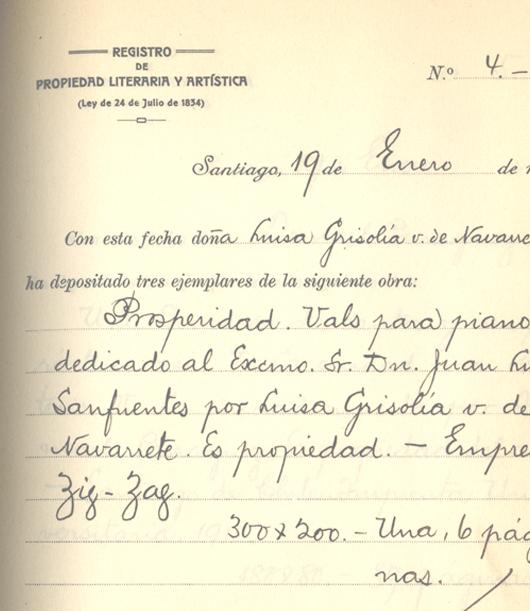 REGISTRO
DE
PROPIEDAD LITERARIA Y ARTÍSTICA
(Ley de 24 de Julio de 1834)
N.º 4.-
Santiago, 19 de Enero de
Con esta fecha doña Luisa Grisolía v. de Navarre
ha depositado tres ejemplares de la siguiente obra:
Prosperidad. Vals para piano
dedicado al Excmo. Sr. Dn. Juan Lu
Sanfuentes por Luisa Grisolía v. de
Navarrete. Es propiedad. - Empre
Zig-Zag.
300 x 200. - Una, 6 pági
nas.